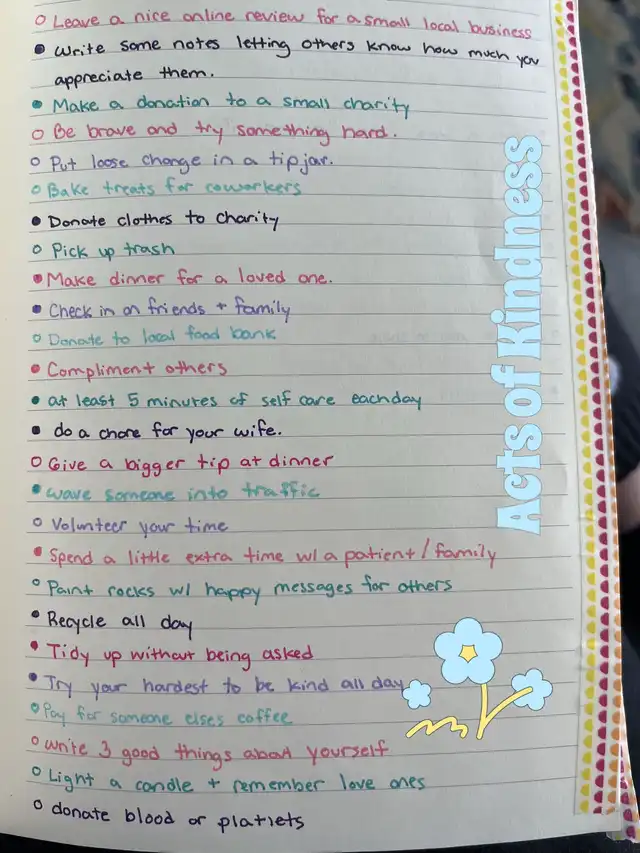 Leave a nice online review for a small local business
Write some notes letting others know how much you
appreciate them.
Make a donation to a small charity
Be brave and try something hard.
Put loose change in a tip jar.
Bake treats for coworkers
Donate clothes to charity
Pick up trash
Make dinner for a loved one.
Check in on friends + family
Donate to local food bank
Compliment others
at least 5 minutes of self care eachday
do a chore for your wife.
Give a bigger tip at dinner
wave someone into traffic
Volunteer your time
Spend a little extra time w/ a patient / family
Paint rocks w/ happy messages for others
Recycle all day
Tidy up without being asked
Try your hardest to be kind all day
Pay for someone elses coffee
write 3 good things about yourself
Light a candle + remember love ones
donate blood or platlets
Acts of Kindness